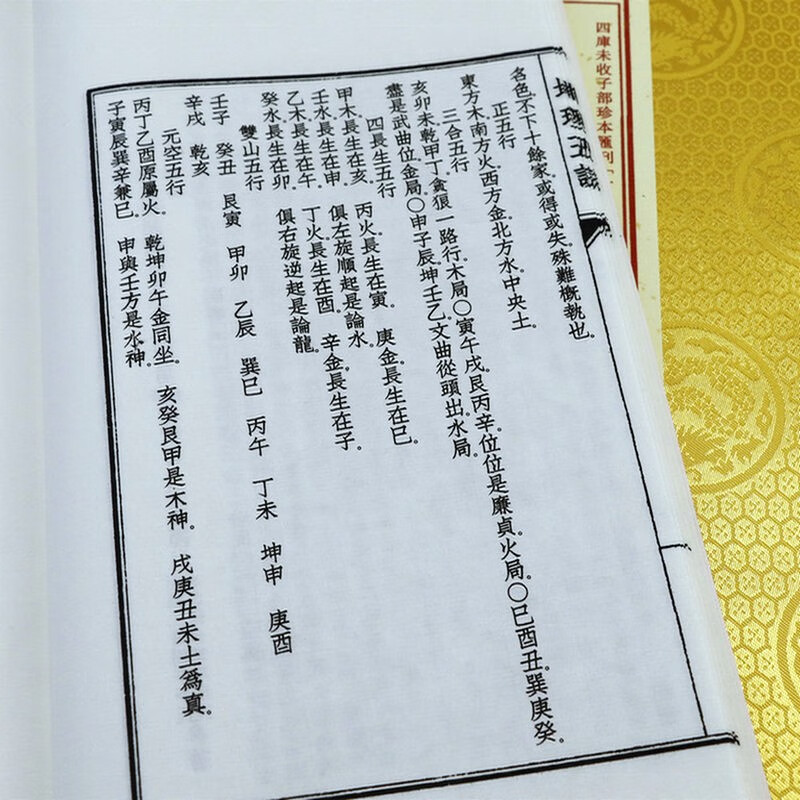 四庫未收子部珍本匯刊
各色不下十餘家。或得或失。殊難概執也。
正五行
東方木。南方火。西方金。北方水。中央土。
三合五行
亥卯未乾甲丁。貪狼一路行。木局〇寅午戌。艮丙辛。位位是廉貞。火局。〇巳酉丑。巽庚癸。
盡是武曲位。金局〇申子辰。坤壬乙。文曲從頭出。水局。
四長生五行
甲木長生在亥。 丙火長生在寅。 庚金長生在巳。
壬水長生在申。 俱左旋順起是論水。
乙木長生在午。 丁火長生在酉。 辛金長生在子。
癸水長生在卯。 俱右旋逆起是論龍。
雙山五行
壬子 癸丑 艮寅 甲卯 乙辰 巽巳 丙午 丁未 坤申 庚酉
辛戌 乾亥
元空五行
丙丁乙酉原屬火。 乾坤卯午金同坐。 亥癸艮甲是木神。 戌庚丑未土為真。
子寅辰巽辛兼巳。 申與壬方是水神。